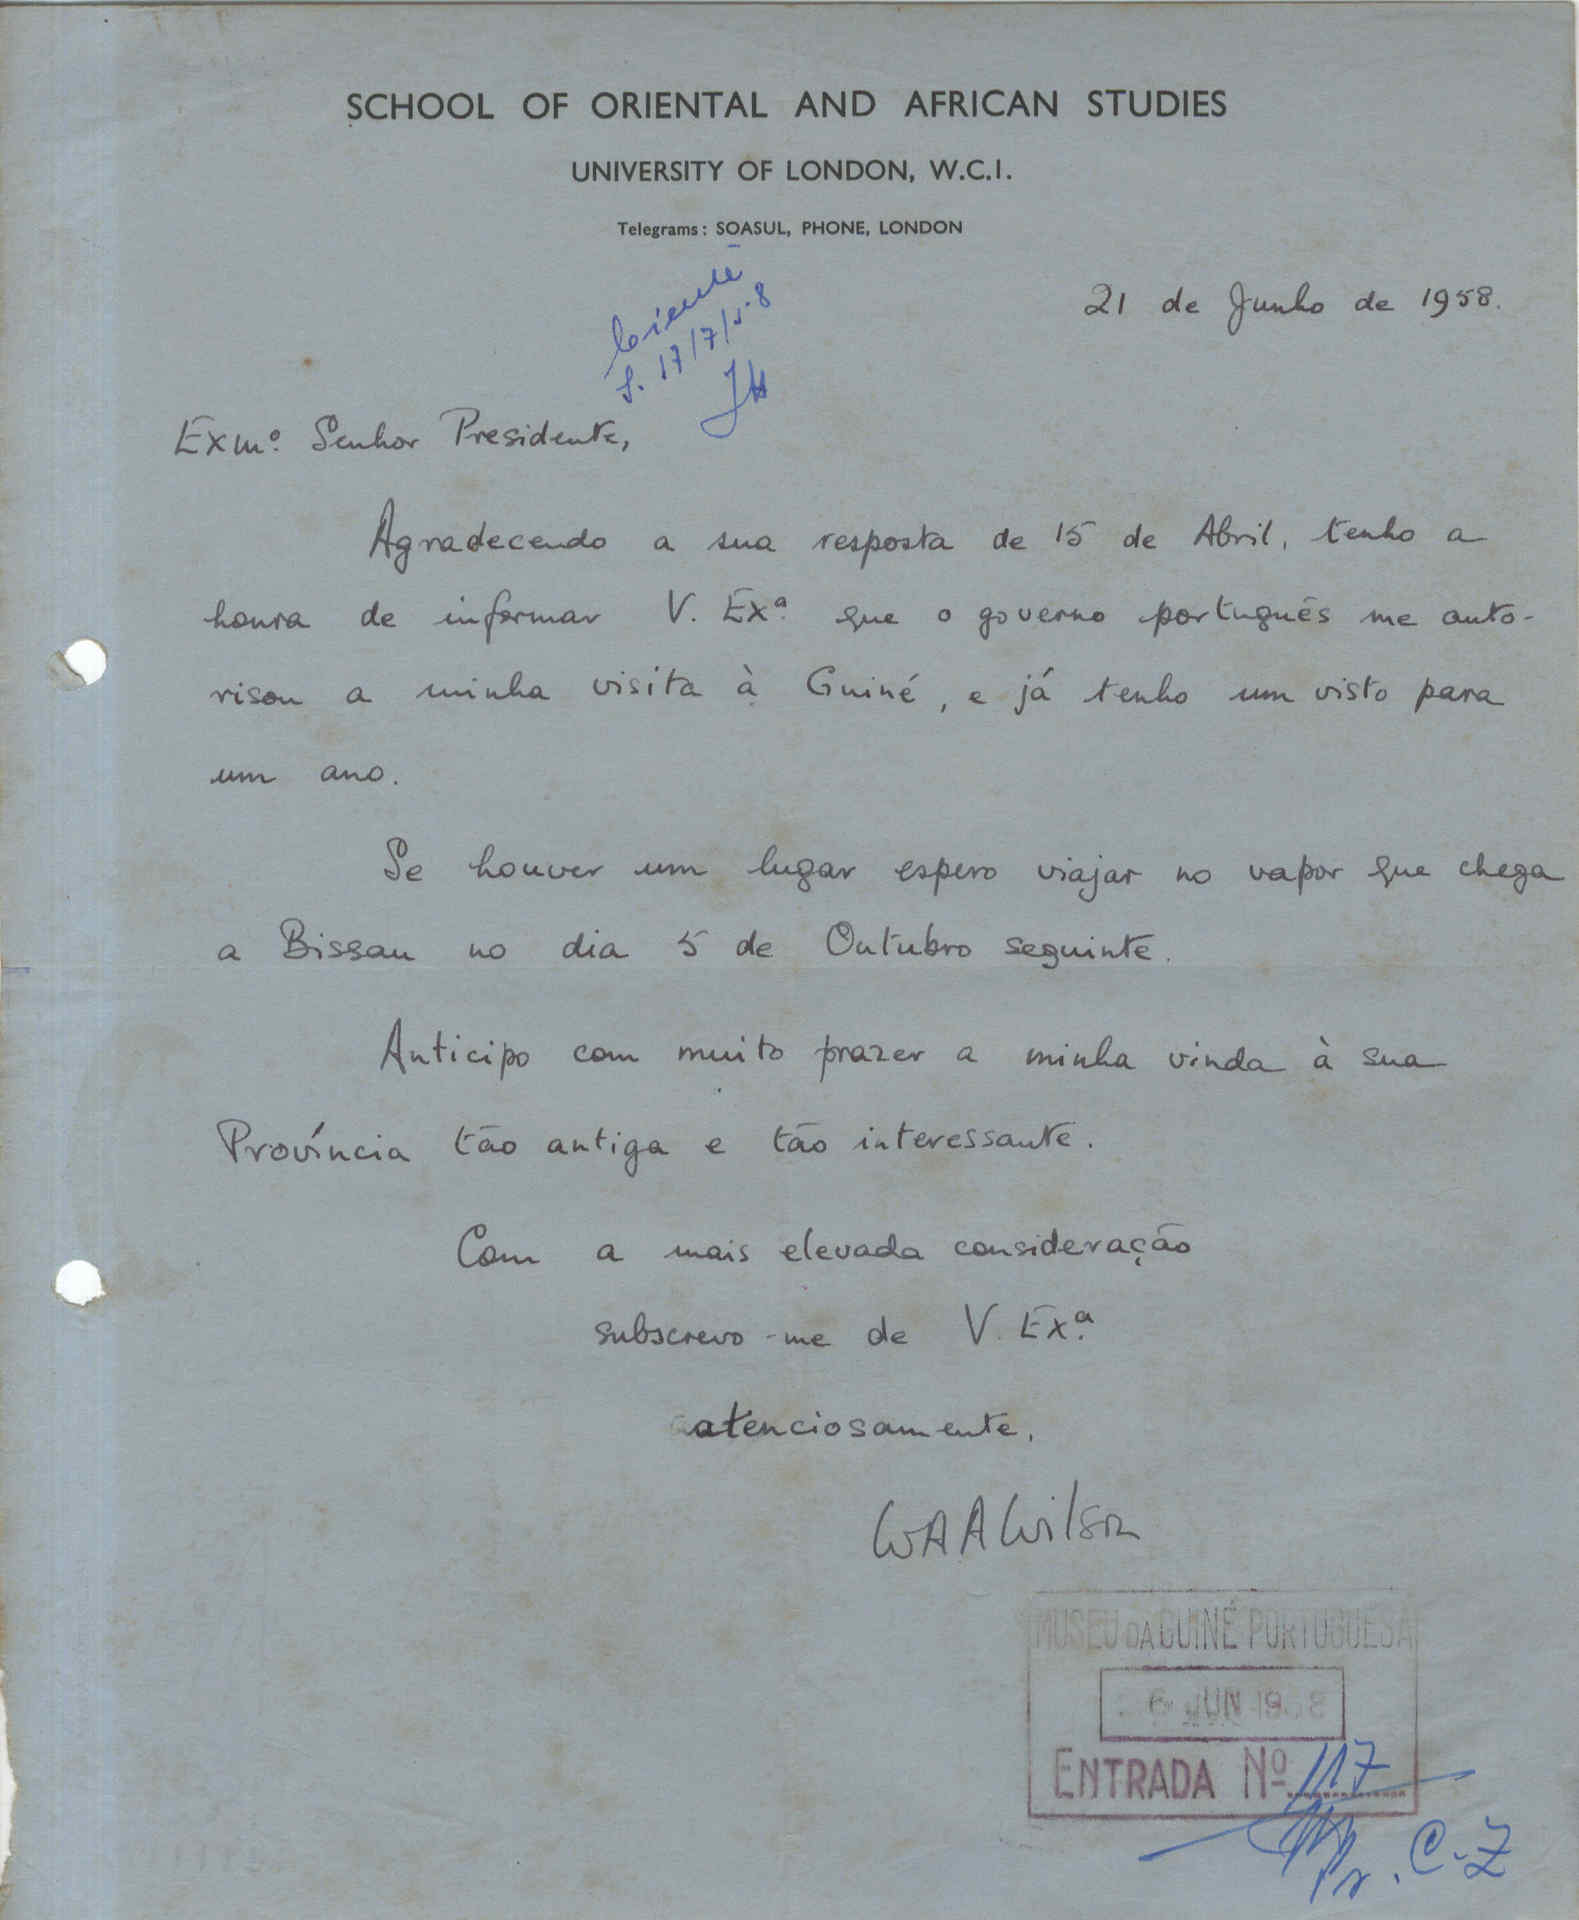 SCHOOL OF ORIENTAL AND AFRICAN STUDIES
UNIVERSITY OF LONDON, W.C.I.
Telegrams: SOASUL, PHONE, LONDON
21 de Junho de 1958.
Ciente
S. 17/7/58
Exmº. Senhor Presidente,
Agradecendo a sua resposta de 15 de Abril, tenho a
honra de informar V. Exª. que o governo português me auto-
risou a minha visita à Guiné, e já tenho um visto para
um ano.
Se houver um lugar espero viajar no vapor que chega
a Bissau no dia 5 de Outubro seguinte.
Anticipo com muito prazer a minha vinda à sua
Província tão antiga e tão interessante.
Com a mais elevada consideração
subscrevo-me de V. Exª.
atenciosamente,
WAAWilson
MUSEU DA GUINÉ PORTUGUESA
6 JUN 1958
ENTRADA Nº 117
Pr. C-Z